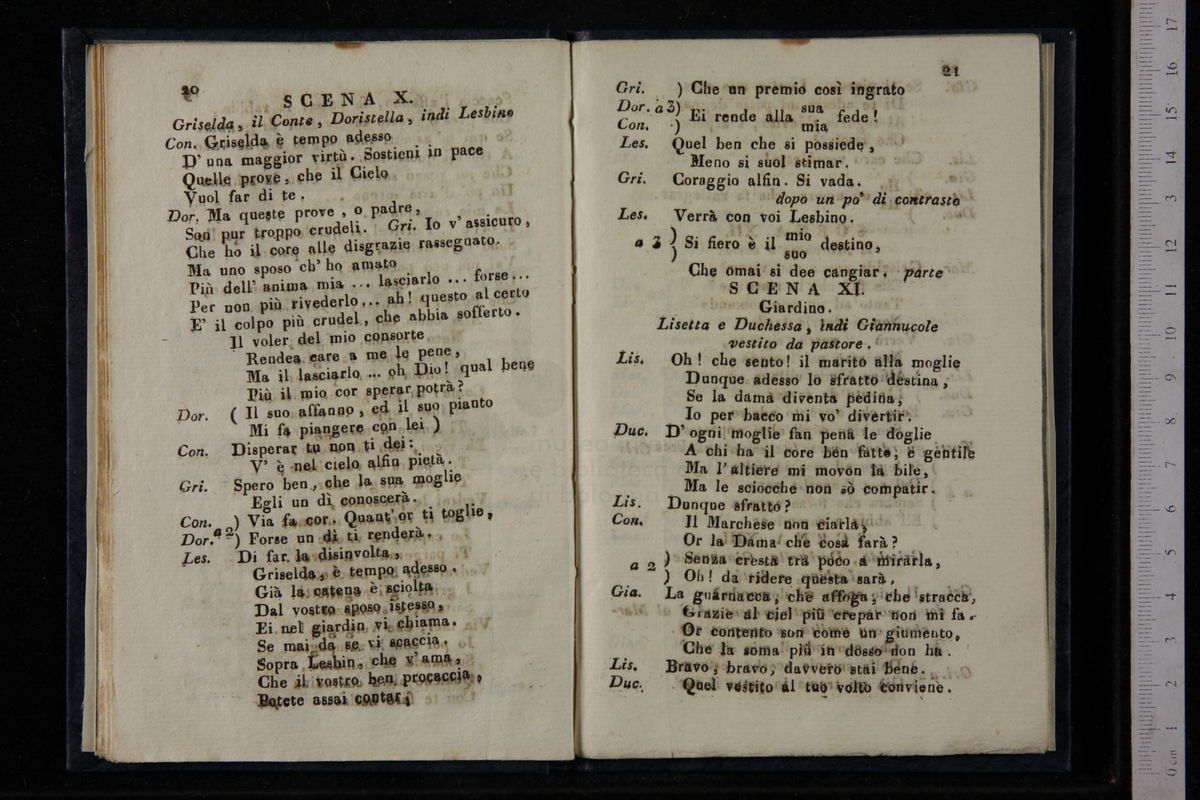 20
SCENA X.
Griselda, il Conte, Doristella, indi Lesbino
Con. Griselda è tempo adesso
D' una maggior virtù. Sostieni in pace
Quelle prove, che il Cielo
Vuol far di te.
Dor. Ma queste prove, o padre,
Son pur troppo crudeli. Gri. Io v' assicuro,
Che ho il core alle disgrazie rassegnato.
Ma uno sposo ch' ho amato
Più dell' anima mia ... lasciarlo ... forse...
Per non più rivederlo... ah! questo al certo
E' il colpo più crudel, che abbia sofferto.
Il voler del mio consorte
Rendea care a me le pene,
Ma il lasciarlo ... oh Dio! qual bene
Più il mio cor sperar potrà?
Dor. ( Il suo affanno, ed il suo pianto
Mi fa piangere con lei )
Con. Disperar tu non ti dei:
V' è nel cielo alfin pietà.
Gri. Spero ben, che la sua moglie
Egli un dì conoscerà.
Con. ) Via fa cor. Quant' or ti toglie,
Dor. a 2 ) Forse un dì ti renderà.
Les. Di far la disinvolta,
Griselda, è tempo adesso.
Già la catena è sciolta
Dal vostro sposo istesso,
Ei nel giardin vi chiama.
Se mai da se vi scaccia,
Sopra Lesbin, che v' ama,
Che il vostro ben procaccia,
Potete assai contar;
21
Gri. ) Che un premio così ingrato
Dor. a 3) Ei rende alla sua fede!
Con. ) mia
Les. Quel ben che si possiede,
Meno si suol stimar.
Gri. Coraggio alfin. Si vada.
dopo un po' di contrasto
Les. Verrà con voi Lesbino.
a 3 ) Si fiero è il mio destino,
) suo
Che omai si dee cangiar. parte
SCENA XI.
Giardino.
Lisetta e Duchessa, indi Giannucole
vestito da pastore.
Lis. Oh! che sento! il marito alla moglie
Dunque adesso lo sfratto destina,
Se la dama diventa pedina,
Io per bacco mi vo' divertir.
Duc. D' ogni moglie fan pena le doglie
A chi ha il core ben fatto, e gentile
Ma l' altiere mi movon la bile,
Ma le sciocche non sò compatir.
Lis. Dunque sfratto?
Con. Il Marchese non ciarla,
Or la Dama che cosa farà?
a 2 ) Senza cresta trà poco a mirarla,
) Oh! da ridere questa sarà.
Gia. La guarnacca, che affoga, che stracca,
Grazie al ciel più crepar non mi fa.
Or contento son come un giumento,
Che la soma più in dosso non ha.
Lis. Bravo, bravo, davvero stai bene.
Duc. Quel vestito al tuo volto conviene.
17
16
15
14
13
12
11
10
9
8
7
6
5
4
3
2
1
0 cm